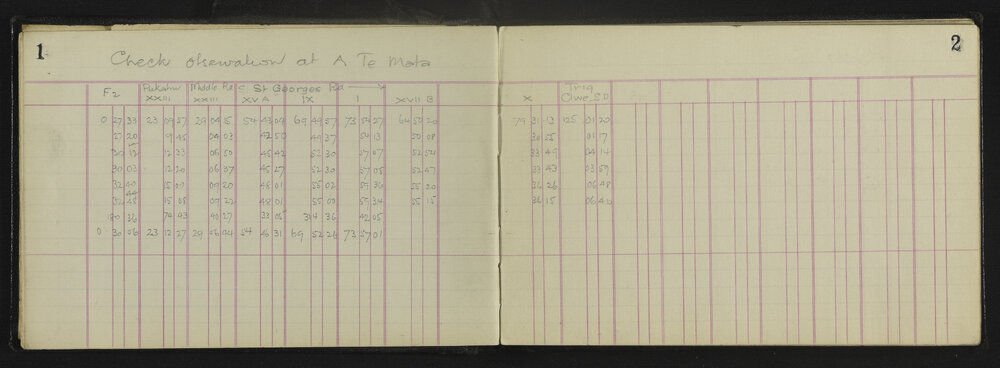 1
2
Check observation at A Te Mata
F2 Pukahu Middle Rd < St Georges Rd > Trig
XXIII XXIII XV A IX I XVII B X Olive S.D
0 27 33 23 09 27 29 04 54 43 09 69 49 37 73 54 27 64 50 20 79 31 13 125 01 20
27 20 9 45 04 03 42 50 49 37 54 13 50 08 30 55 01 17
30 12 12 33 06 50 45 42 52 30 57 07 52 54 33 49 04 14
30 03 12 20 06 37 45 27 52 30 57 05 52 47 33 43 03 59
32 15 09 09 20 48 01 55 02 59 36 55 20 36 26 06 48
32 15 05 09 22 48 01 55 00 59 34 55 15 36 15 06 40
180 36 74 43 40 27 33 05 314 36 42 05
0 30 06 23 12 27 29 06 44 54 45 31 69 52 26 73 57 01